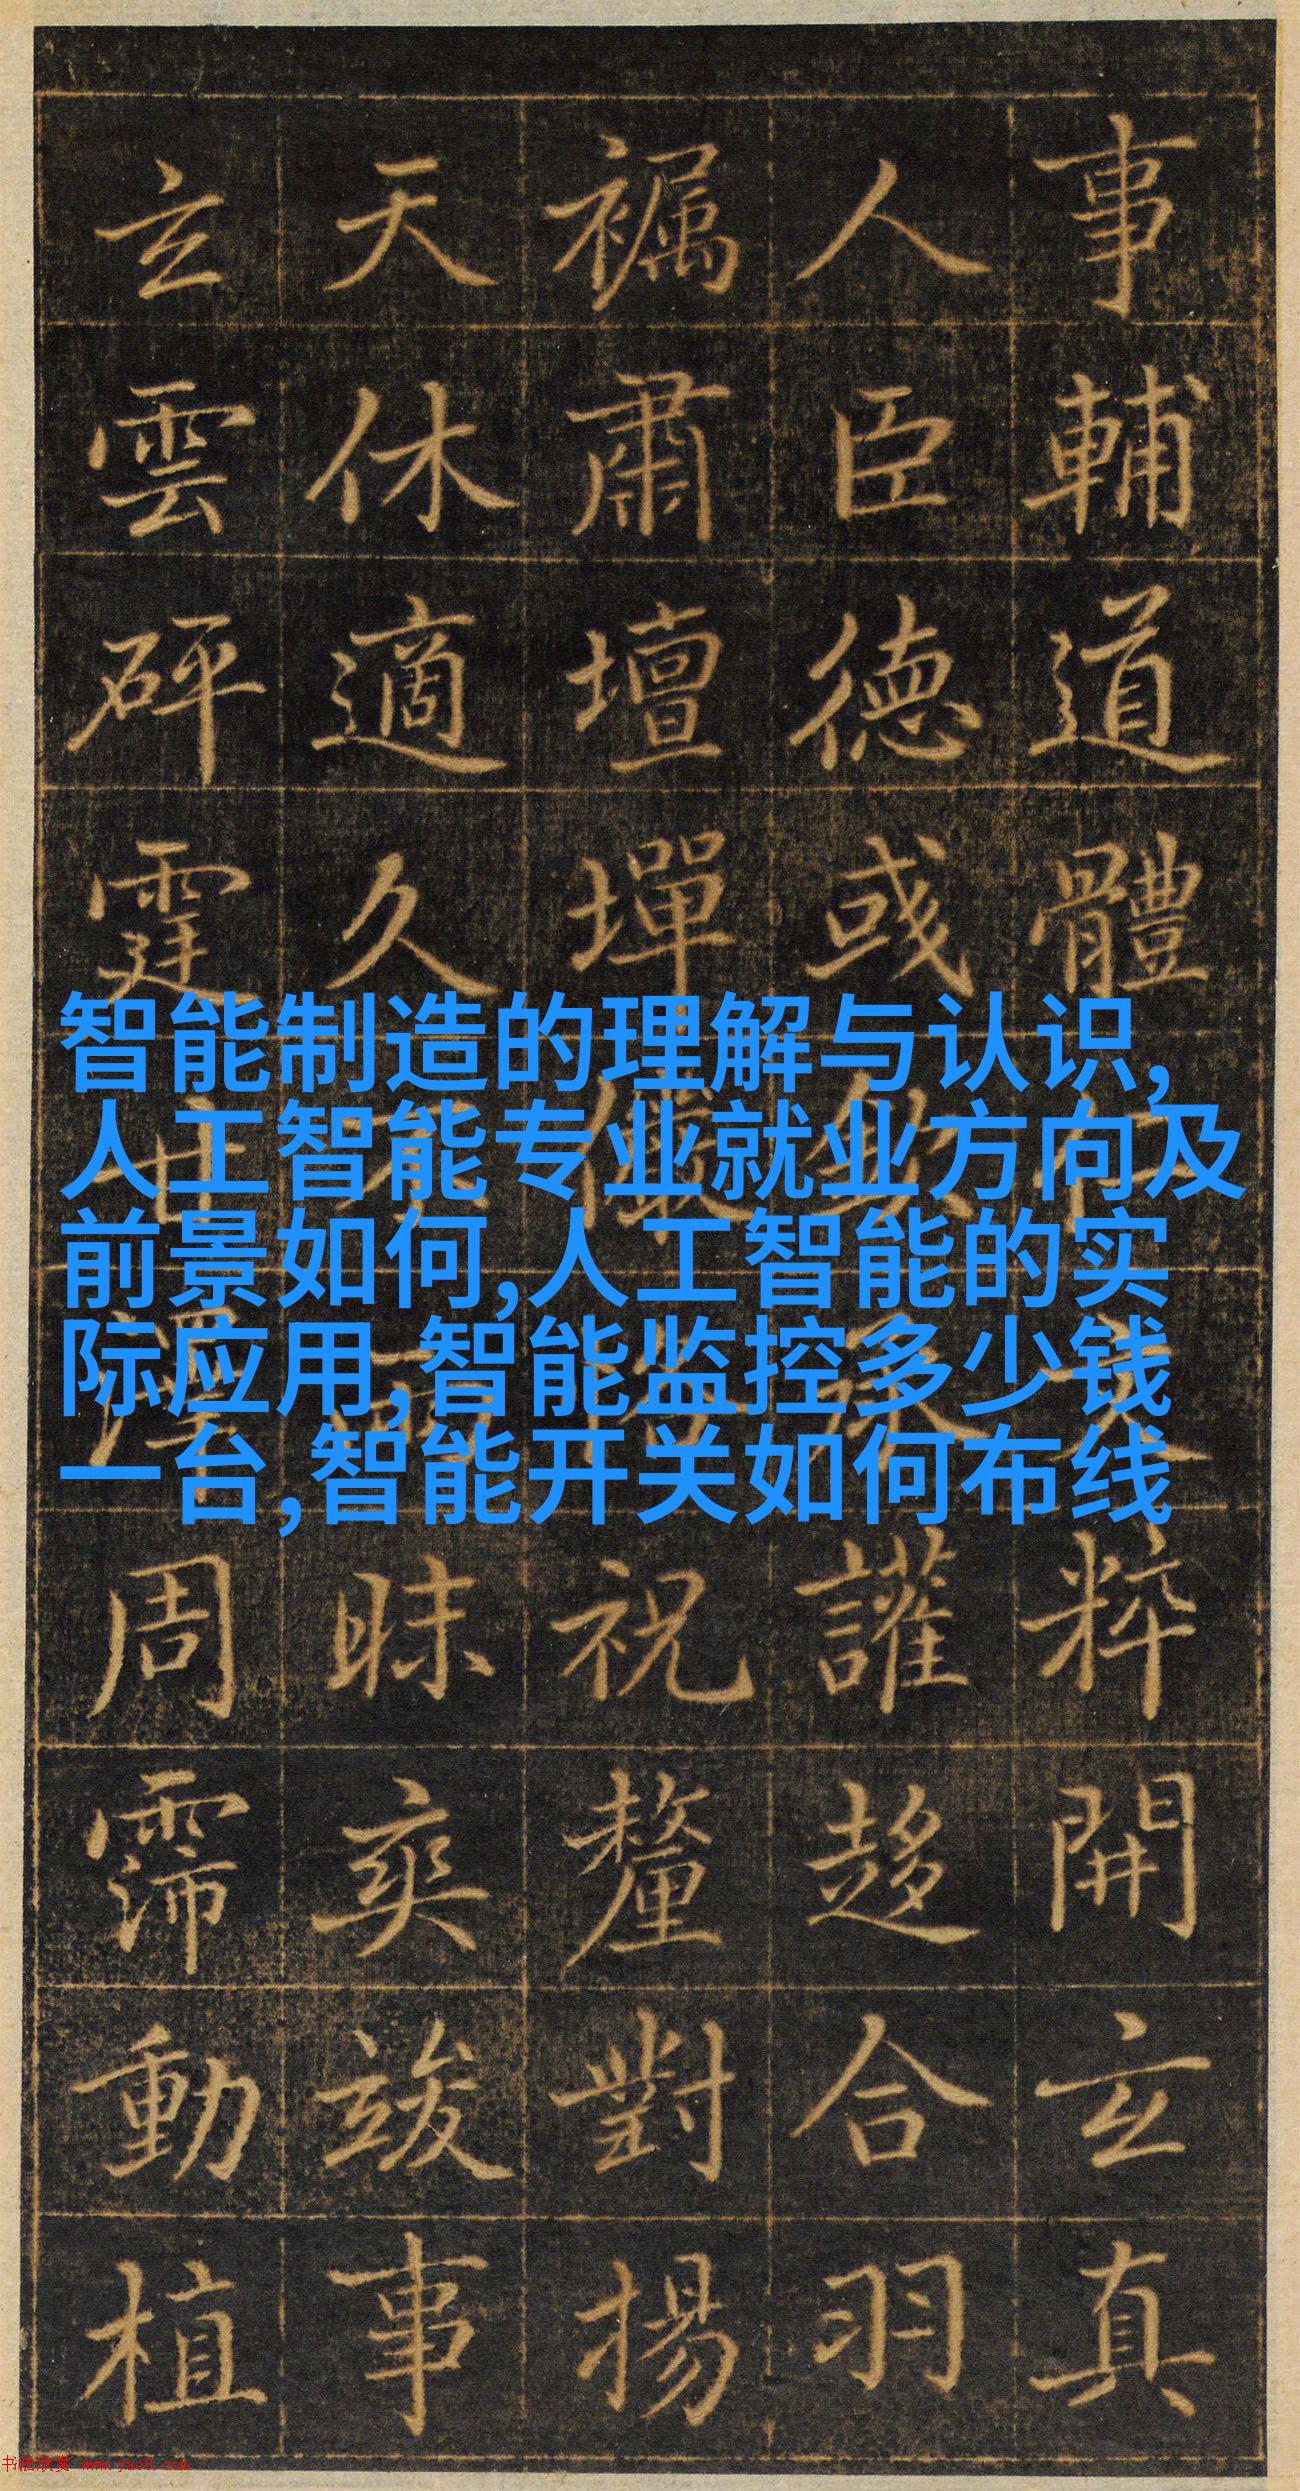 事輔道體粹開玄真
人臣德或讙趍合羽
肅壇墠祝釐對揚
天休適久昧爽竣事
玄雲砰霆周霈動植
智能制造的理解与认识,
人工智能专业就业方向及
前景如何,人工智能的实
际应用,智能监控多少钱
一台,智能开关如何布线
书法欣赏 www.yac8.com